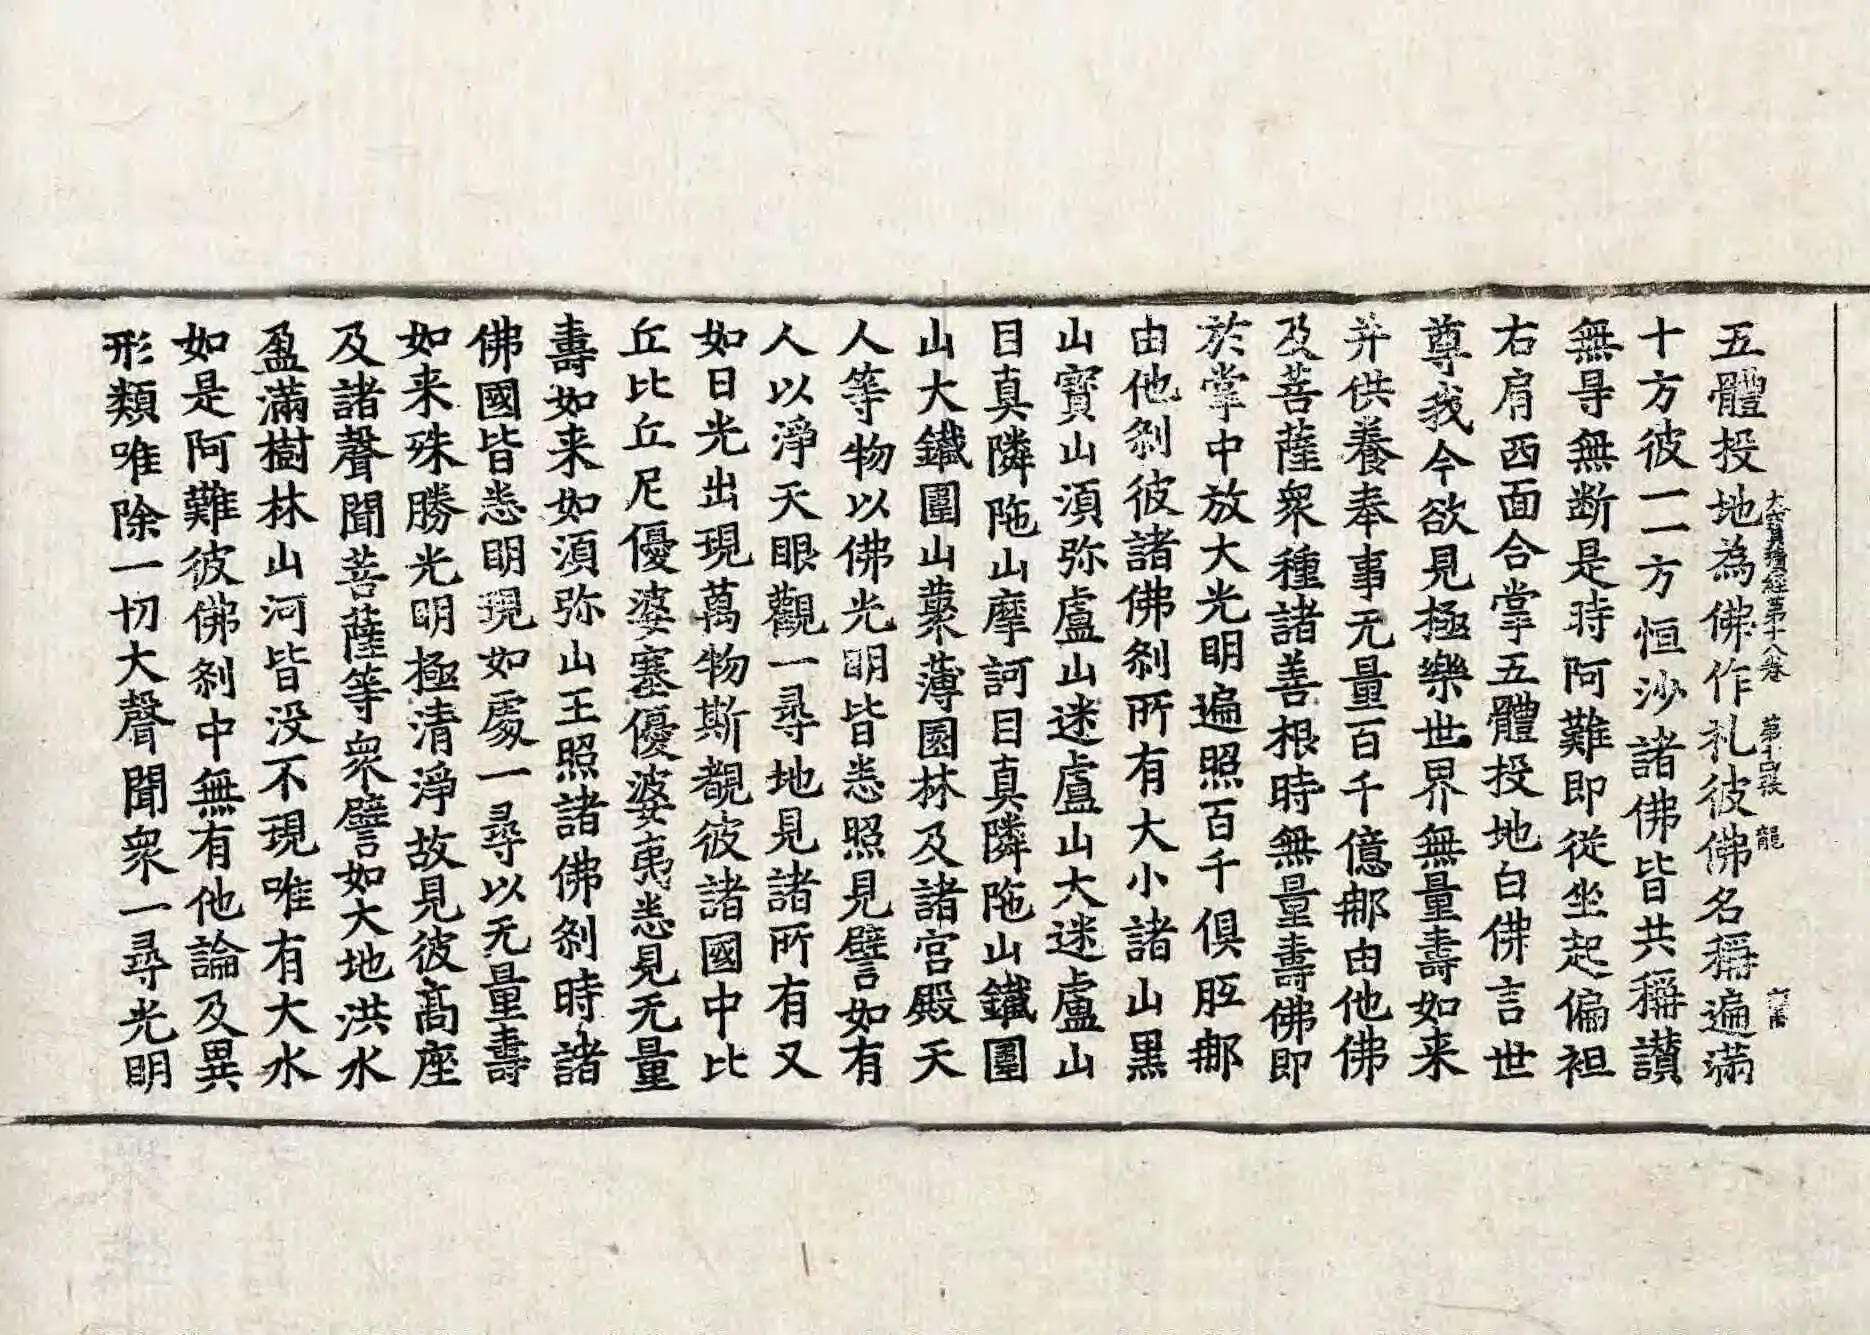 大寶積經第十八卷 第十四張 龍
五體投地為佛作礼彼佛名稱遍滿
十方彼一一方恒沙諸佛皆共稱讃
無㝵無断是時阿難即從坐起偏袒
右肩西面合掌五體投地白佛言世
尊我今欲見極樂世界無量壽如来
并供養奉事无量百千億那由他佛
及菩薩衆種諸善根時無量壽佛即
於掌中放大光明遍照百千俱胝那
由他刹彼諸佛刹所有大小諸山黑
山寶山須弥盧山迷盧山大迷盧山
目真隣陁山摩訶目真隣陁山鐵圍
山大鐵圍山藂薄園林及諸宮殿天
人等物以佛光明皆悉照見譬如有
人以淨天眼觀一尋地見諸所有又
如日光出現萬物斯覩彼諸國中比
丘比丘尼優婆塞優婆夷悉見无量
壽如来如須弥山王照諸佛刹時諸
佛國皆悉明現如處一尋以无量壽
如来殊勝光明極清淨故見彼髙座
及諸聲聞菩薩等衆譬如大地洪水
盈滿樹林山河皆没不現唯有大水
如是阿難彼佛刹中無有他論及異
形類唯除一切大聲聞衆一尋光明